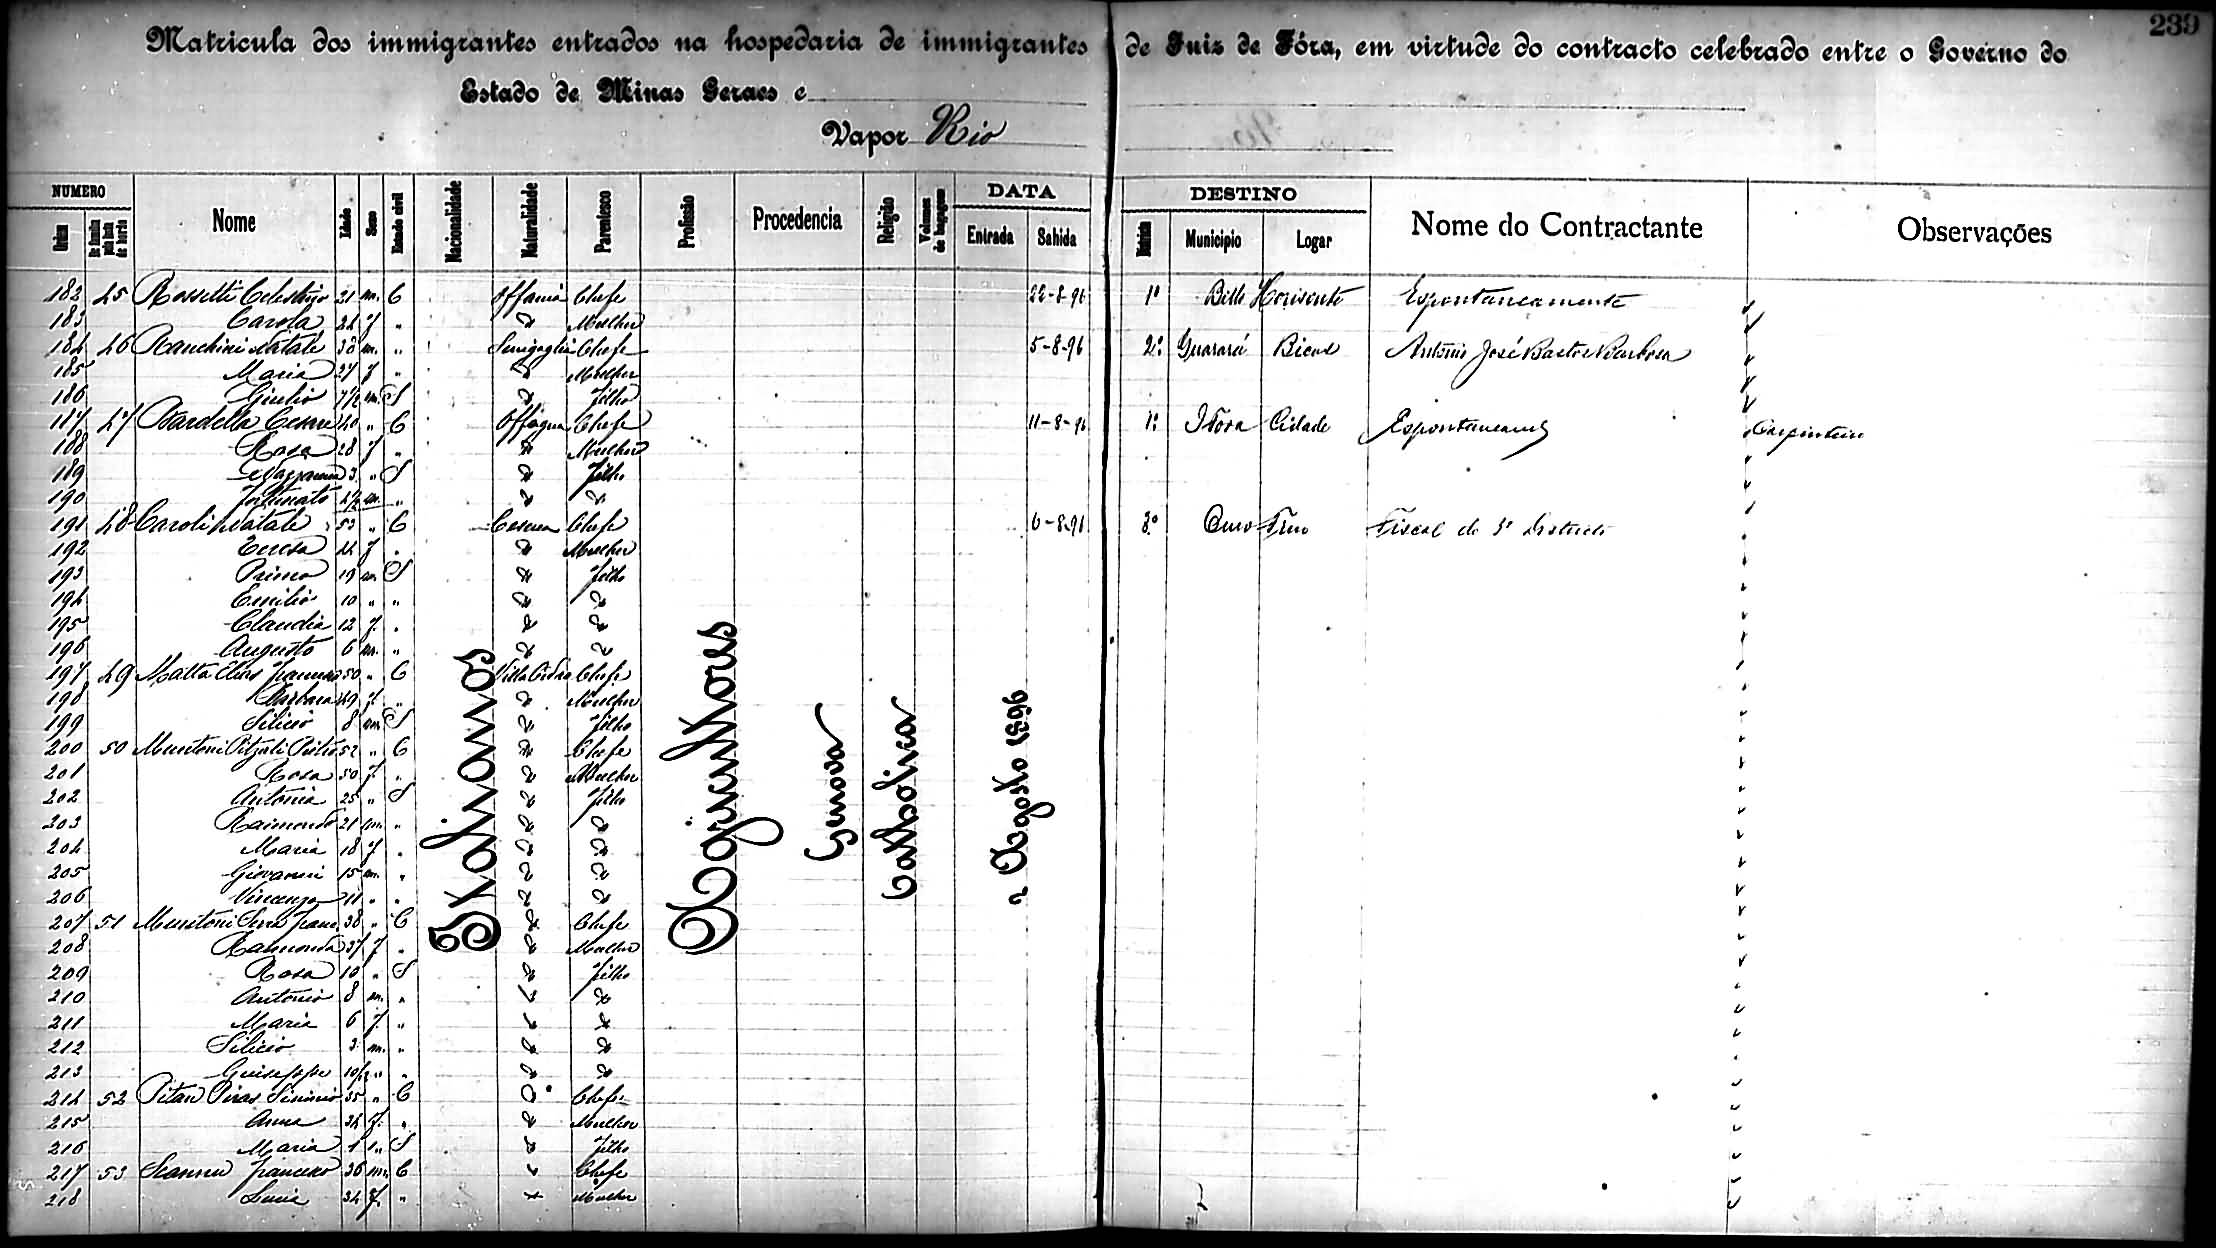 239
Matricula dos immigrantes entrados na hospedaria de immigrantes de Juiz de Fóra, em virtude do contracto celebrado entre o Governo do
Estado de Minas Geraes e
Vapor Rio
NUMERO Nome Idade Sexo Estado civil Nacionalidade Naturalidade Parentesco Profissão Procedencia Religião Volumes de bagagem DATA DESTINO Nome do Contractante Observações
Ordem De familia pela lista de bordo Entrada Sahida Districto Municipio Logar
Italianos Agricultores Genova Catholica 2 Agosto 1896
182 45 Rossetti Celestino 21 m. C Offania Chefe 22-8-96 1º Bello Horisonte Espontaneamente
183 Carola 24 f " " Mulher
184 46 Ranchini Natale 38 m. " Senigaglia Chefe 5-8-96 2º Guarará Bicas Antonio José Bastos Barbosa
185 Maria 27 f " " Mulher
186 Giulio m. S " Filho
187 47 Bardella Cesare 40 " C Chefe 11-8-96 1º Cidade Carpinteiro
188 Rosa 28 f " " Mulher
189 3 " S " Filho
190 Fortunato m. " " "
191 48 Caroli Natale 53 " C Cesena Chefe 6-8-96 3º Ouro Fino Fiscal do 3º Districto
192 Teresa 44 f " " Mulher
193 Primo 19 m. S " Filho
194 Emilio 10 " " " "
195 Claudia 12 f. " " "
196 Augusto 6 m. " " "
197 49 Matta 50 " C Villa Cidro Chefe
198 Barbara 49 f. " " Mulher
199 Silicio 8 m. S " Filho
200 50 Muntoni Pitzali 52 " C " Chefe
201 Rosa 50 f. " " Mulher
202 Antonia 25 " S " Filho
203 Raimondo 21 m. " " "
204 Maria 18 f " " "
205 Giovanni 15 m. " " "
206 Vincenzo 11 " " " "
207 51 Muntoni Serra 38 " C " Chefe
208 Raimonda 37 f " " Mulher
209 Rosa 10 " S " Filho
210 Antonio 8 m. " " "
211 Maria 6 f. " " "
212 Silicio 3 m. " " "
213 Guiseppe 10/12 " " " "
214 52 Pitau Piras Sisinnio 35 " C " Chefe
215 Anna 34 f. " " Mulher
216 Maria 1 " S " Filho
217 53 Scanu Francesco 36 m. C " Chefe
218 Lucia 34 f. " " Mulher